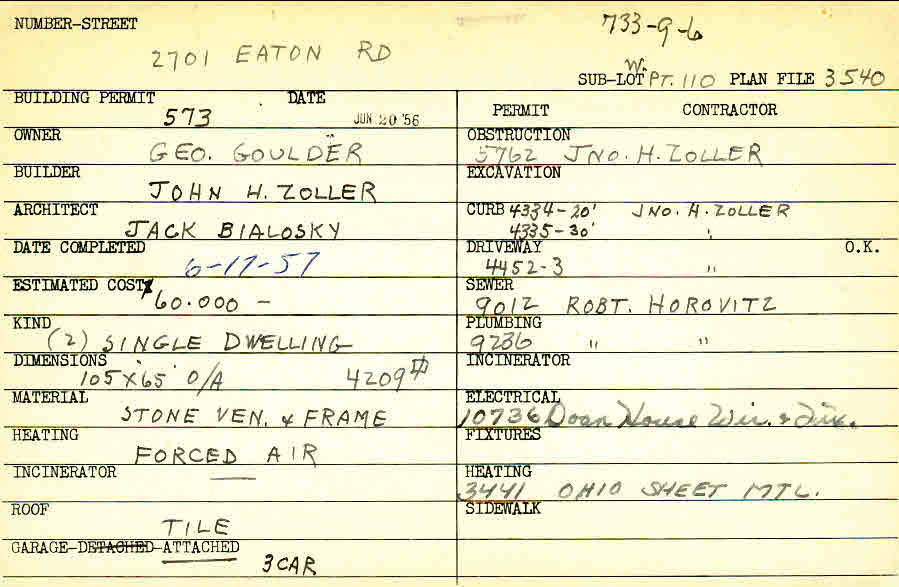 NUMBER-STREET
733-9-6
2701 EATON RD
W.
SUB-LOT PT. 110 PLAN FILE 3540
BUILDING PERMIT DATE
573 JUN 20 '56
OWNER
GEO. GOULDER
BUILDER
JOHN H. ZOLLER
ARCHITECT
JACK BIALOSKY
DATE COMPLETED
6-17-57
ESTIMATED COST $
60.000 -
KIND
(2) SINGLE DWELLING
DIMENSIONS
105'X65' O/A 4209
MATERIAL
STONE VEN. & FRAME
HEATING
FORCED AIR
INCINERATOR
—
ROOF
TILE
GARAGE-DETACHED-ATTACHED
3 CAR
PERMIT CONTRACTOR
OBSTRUCTION
5762 JNO. H. ZOLLER
EXCAVATION
CURB 4334-20' JNO. H. ZOLLER
4335-30' "
DRIVEWAY O.K.
4452-3 "
SEWER
9012 ROBT. HOROVITZ
PLUMBING
9236 " "
INCINERATOR
ELECTRICAL
10736 Doan House Wir. & Fix.
FIXTURES
HEATING
3441 OHIO SHEET MTL.
SIDEWALK